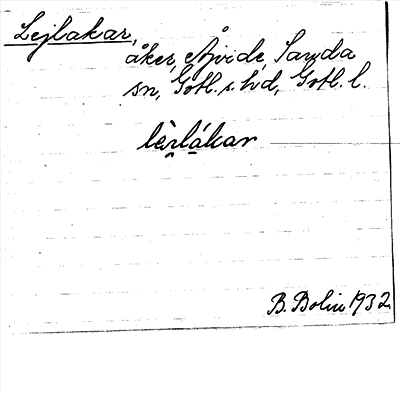 Lejlakar,
åker, Arvide, Sanda
sn, Gotl. s. hd, Gotl. l.
lèrlákar
B. Bolin 1932